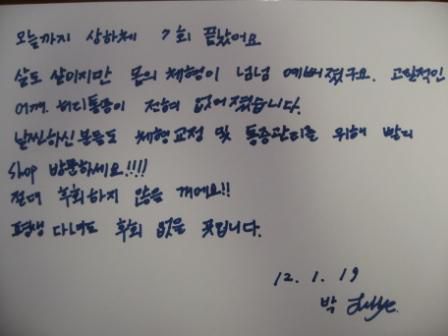 오늘까지 상하체 7회 끝났어요
살도 살이지만 몸의 체형이 넘넘 예뻐졌구요. 고질적인
어깨. 허리통증이 전혀 없어졌습니다.
날씬하신분들도 체형교정 및 통증관리를 위해 빨리
shop 방문하세요!!!!
절대 후회하지 않을 꺼에요!!
평생 다녀도 후회 없을 곳입니다.
12. 1. 19
박